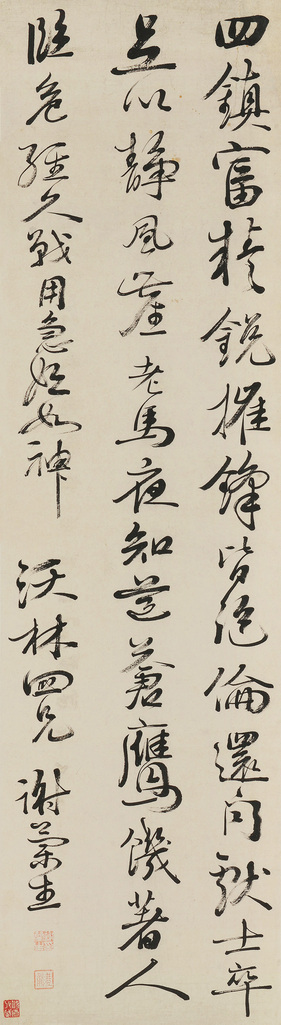 四鎮富精銳摧鋒皆絕倫還聞獻士卒
足以靜風塵老馬夜知道蒼鷹饑著人
臨危經久戰用急始如神 沃林四兄 謝蘭生